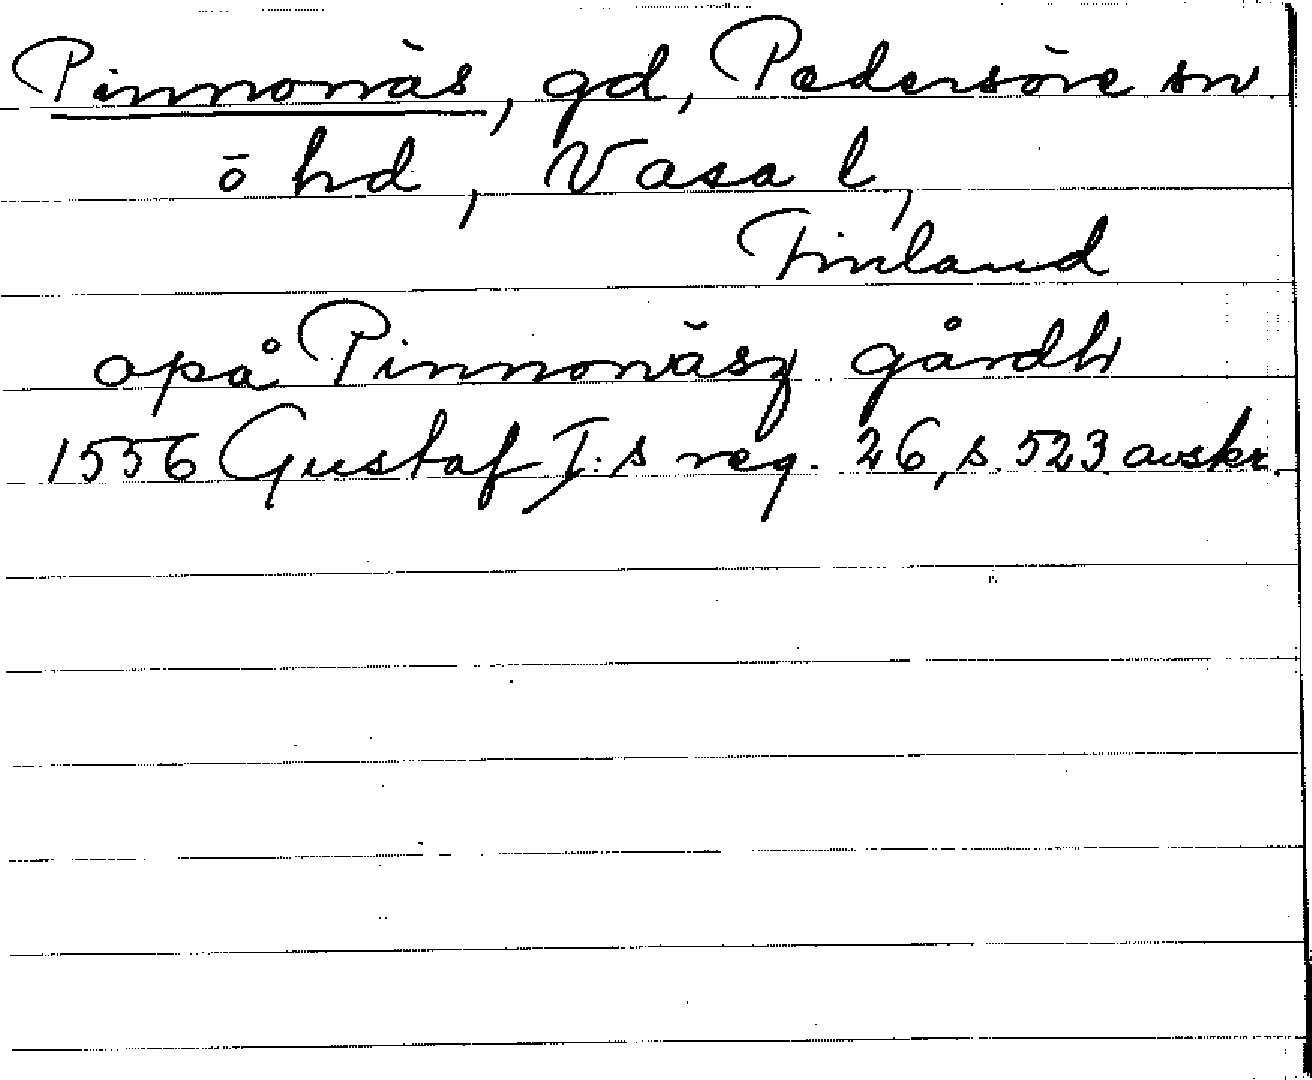 Pinnonäs, gd, Pedersöre sn
o hd, Vasa l,
Finland
opå Pinnonäsz gårdh
1556 Gustaf I:s reg. 26, s. 523 avskr.